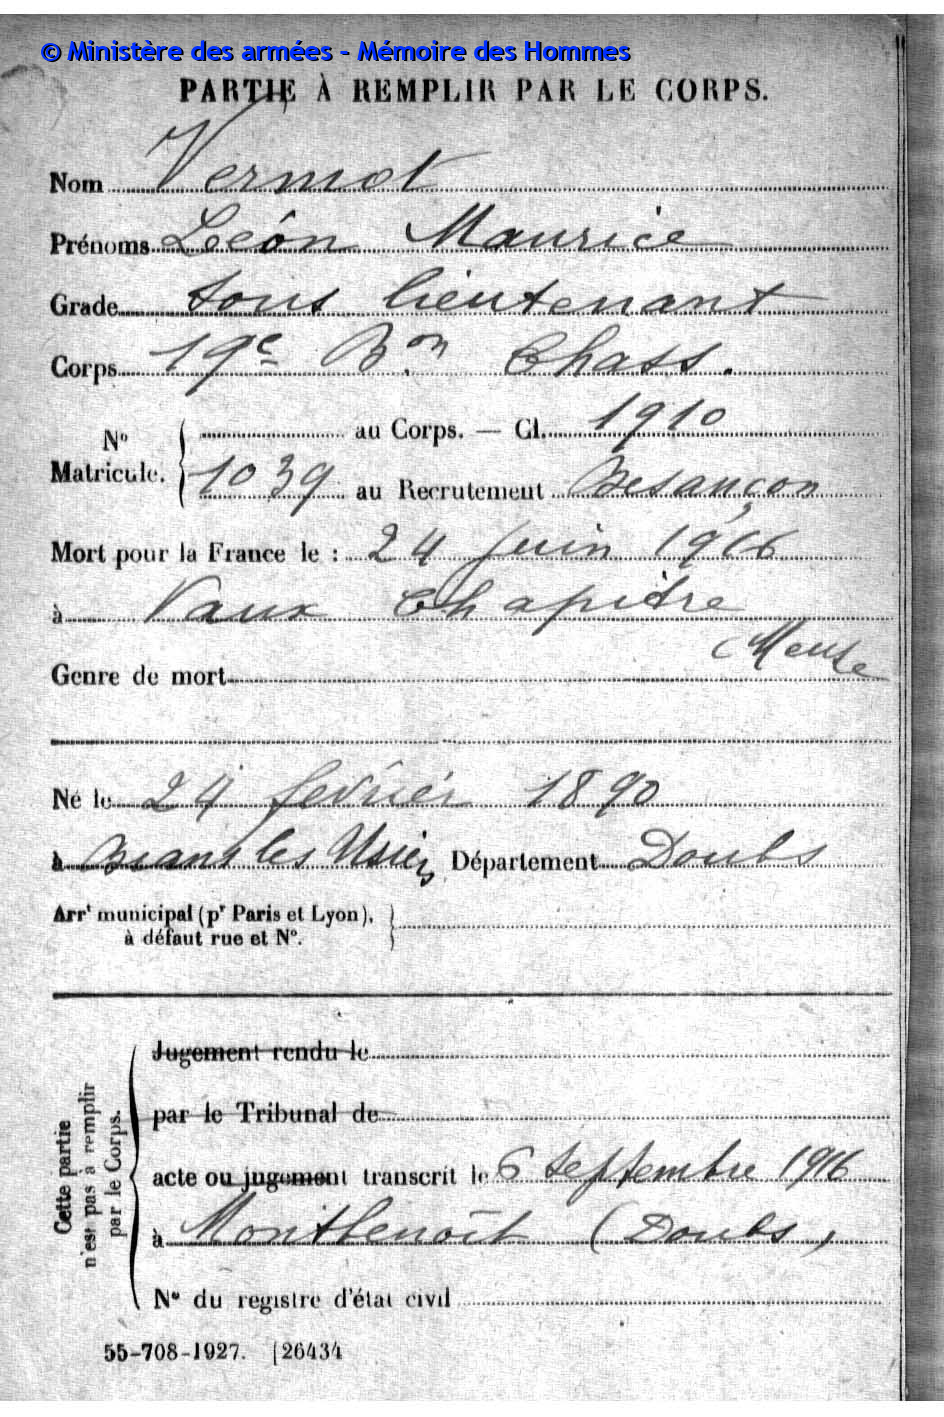 © Ministère des armées - Mémoire des Hommes
PARTIE À REMPLIR PAR LE CORPS.
Nom Vermot
Prénoms Léon Maurice
Grade sous lieutenant
Corps 19e Bon Chass.
N° Matricule. { au Corps. — Cl. 1910
1039 au Recrutement Besançon
Mort pour la France le : 24 juin 1916
à Vaux Chapitre
(Meuse
Genre de mort
Né le 24 février 1890
à Bians les Usiers Département Doubs
Arrt municipal (pr Paris et Lyon),
à défaut rue et N°.
Cette partie
n'est pas à remplir
par le Corps.
Jugement rendu le
par le Tribunal de
acte ou jugement transcrit le 6 septembre 1916
à Montbenoît (Doubs)
N° du registre d'état civil
55-708-1927. [26434